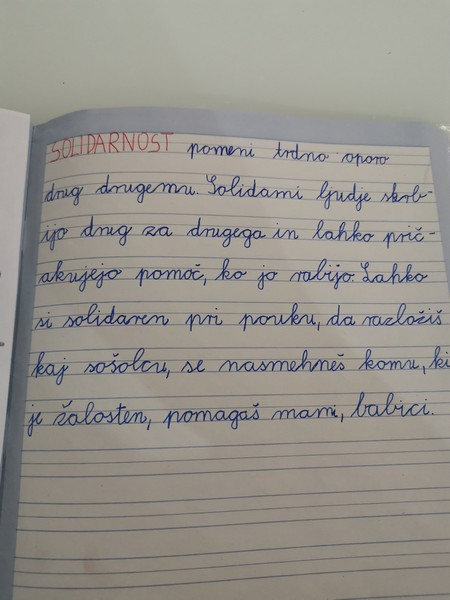 SOLIDARNOST pomeni trdno oporo
drug drugemu. Solidarni ljudje skrb-
ijo drug za drugega in lahko prič-
akujejo pomoč, ko jo rabijo. Lahko
si solidaren pri pouku, da razložiš
kaj sošolcu, se nasmehneš komu, ki
je žalosten, pomagaš mami, babici.